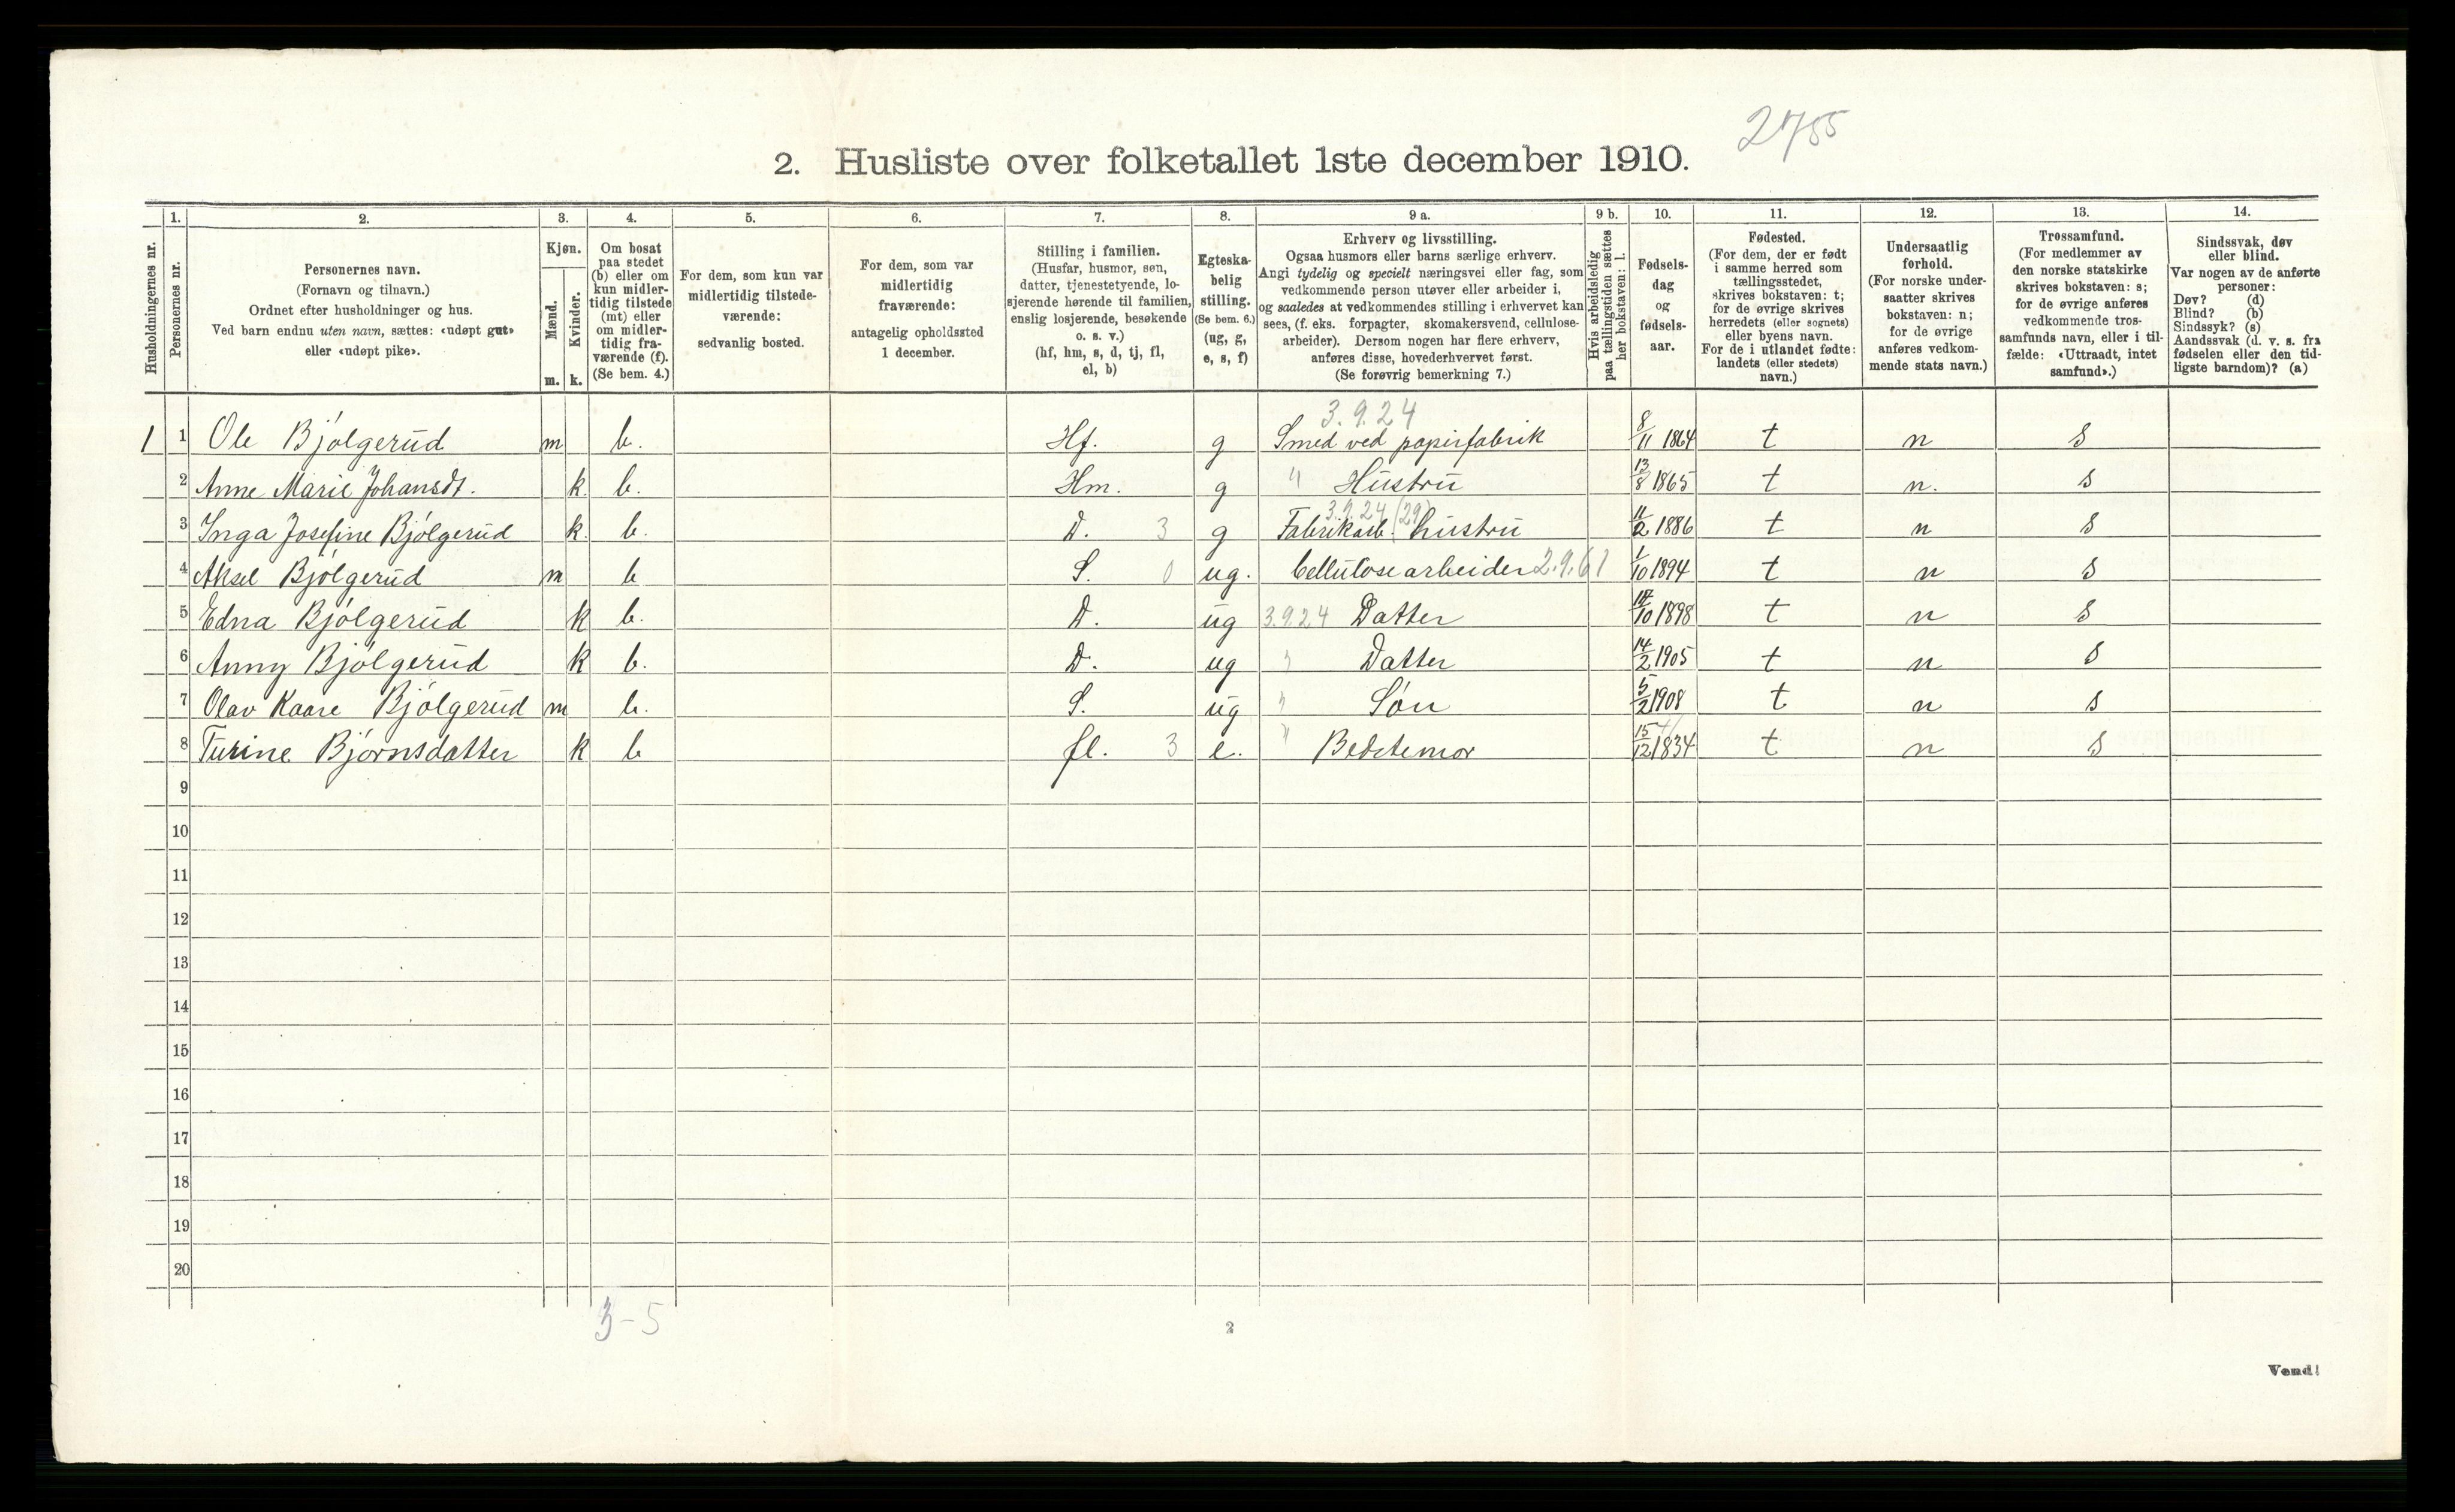 2755
2. Husliste over folketallet 1ste december 1910.
Husholdningernes nr.
1.
Personernes nr.
2.
Personernes navn.
(Fornavn og tilnavn.)
Ordnet efter husholdninger og hus.
Ved barn endnu uten navn, sættes: «udøpt gut»
eller «udøpt pike».
3.
Kjøn.
Mænd.
Kvinder.
m. k.
4.
Om bosat
paa stedet
(b) eller om
kun midler-
tidig tilstede
(mt) eller
om midler-
tidig fra-
værende (f).
(Se bem. 4.)
5.
For dem, som kun var
midlertidig tilstede-
værende:
sedvanlig bosted.
6.
For dem, som var
midlertidig
fraværende:
antagelig opholdssted
1 december.
7.
Stilling i familien.
(Husfar, husmor, søn,
datter, tjenestetyende, lo-
sjerende hørende til familien,
enslig losjerende, besøkende
o. s. v.)
(hf, hm, s, d, tj, fl,
el, b)
8.
Egteska-
belig
stilling.
(Se bem. 6.)
(ug, g,
e, s, f)
9 a.
Erhverv og livsstilling.
Ogsaa husmors eller barns særlige erhverv.
Angi tydelig og specielt næringsvei eller fag, som
vedkommende person utøver eller arbeider i,
og saaledes at vedkommendes stilling i erhvervet kan
sees, (f. eks. forpagter, skomakersvend, cellulose-
arbeider). Dersom nogen har flere erhverv,
anføres disse, hovederhvervet først.
(Se forøvrig bemerkning 7.)
9 b.
Hvis arbeidsledig
paa tællingstiden sættes
her bokstaven: l.
10.
Fødsels-
dag
og
fødsels-
aar.
11.
Fødested.
(For dem, der er født
i samme herred som
tællingsstedet,
skrives bokstaven: t;
for de øvrige skrives
herredets (eller sognets)
eller byens navn.
For de i utlandet fødte:
landets (eller stedets)
navn.)
12.
Undersaatlig
forhold.
(For norske under-
saatter skrives
bokstaven: n;
for de øvrige
anføres vedkom-
mende stats navn.)
13.
Trossamfund.
(For medlemmer av
den norske statskirke
skrives bokstaven: s;
for de øvrige anføres
vedkommende tros-
samfunds navn, eller i til-
fælde: «Uttraadt, intet
samfund».)
14.
Sindssvak, døv
eller blind.
Var nogen av de anførte
personer:
Døv? (d)
Blind? (b)
Sindssyk? (s)
Aandssvak (d. v. s. fra
fødselen eller den tid-
ligste barndom)? (a)
3.9.24
1 1 Ole Bjølgerud m b. Hf. g Smed ved papirfabrik 8/11 1864 t n s
2 Anne Marie Johansdt. k. b. Hm. g " Hustru 13/8 1865 t n. s
3.9.24 (29)
3 Inga Josefine Bjølgerud k. b. D. 3 g Fabrikarb. hustru 11/2 1886 t n s
4 Aksel Bjølgerud m b S. 0 ug. Cellulosearbeider 2.9.61 1/10 1894 t n s
5 Edna Bjølgerud k b. D. ug 3.9.24 Datter /10 1898 t n s
6 Anny Bjølgerud k b. D. ug " Datter 14/2 1905 t n s
7 Olav Kaare Bjølgerud m b. S. ug " Søn 5/2 1908 t n s
8 Turine Bjørnsdatter k b fl. 3 e. " Bedstemor 15/12 1834 t n s
9
10
11
12
13
14
15
16
17
18
19
20
3-5
2
Vend!